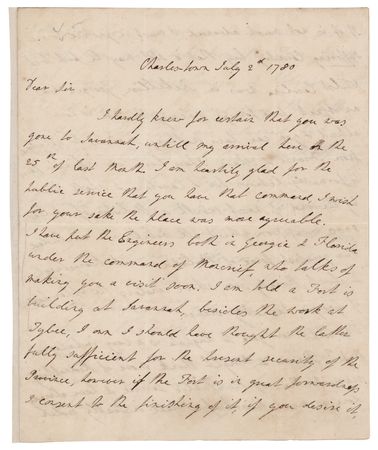 Charles-town July 2d 1780
Dear Sir
I hardly knew for certain that you was
gone to Savannah, untill my arrival here on the
25th of last Month. I am heartily glad for the
public service that you have that command, I wish
for your sake the place was more agreeable.
I have put the Engineers both in Georgia & Florida
under the command of Moncrief, who talks of
making you a visit soon. I am told a Fort is
building at Savannah, besides the work at
Tybee, I own I should have thought the latter
fully sufficient for the present security of the
Province, however if the Fort is in great forwardness
I consent to the finishing of it if you desire it,